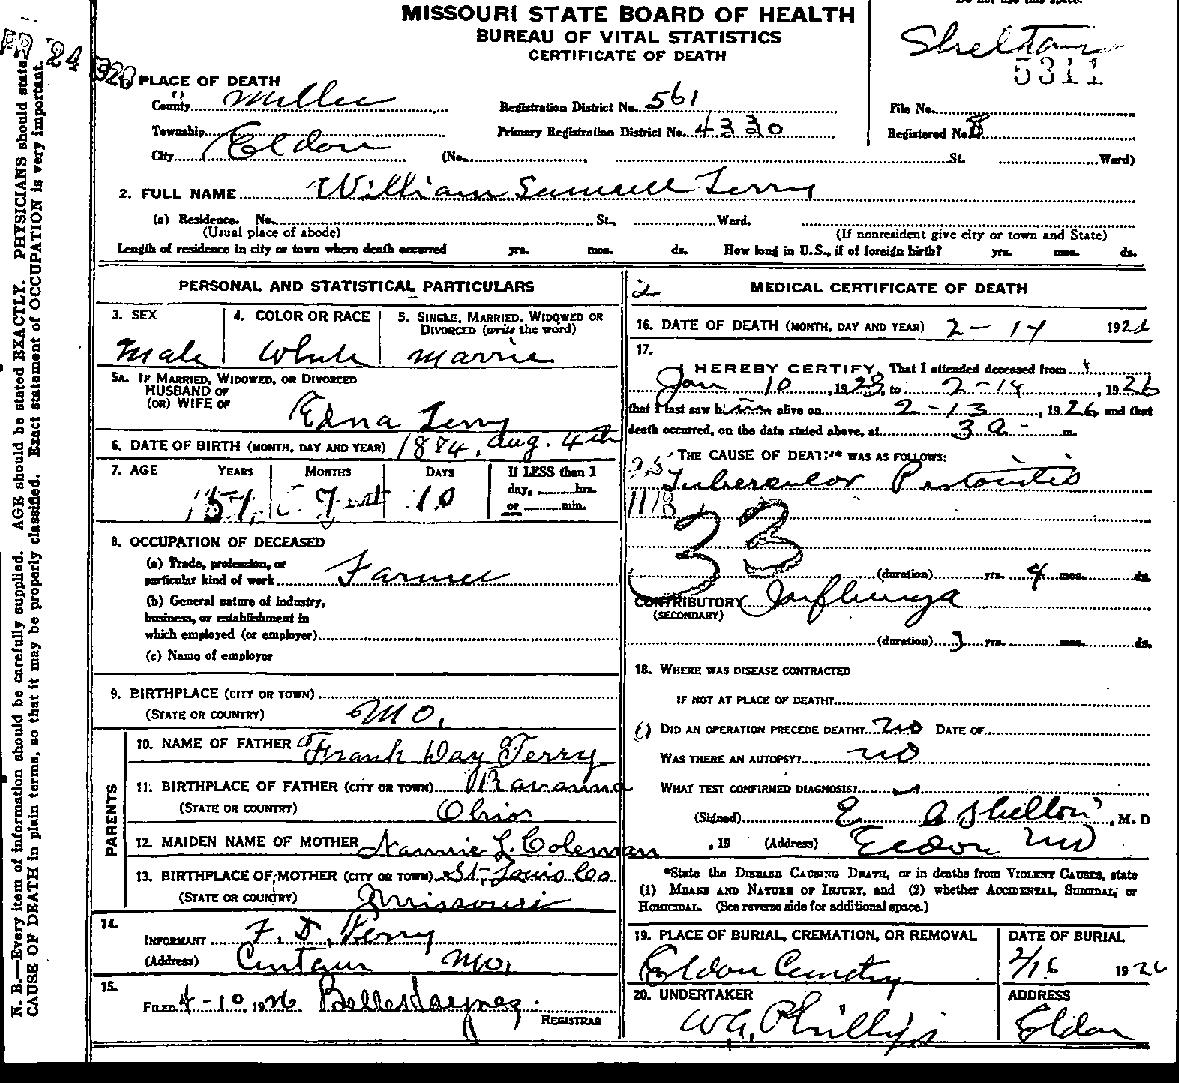 MISSOURI STATE BOARD OF HEALTH
BUREAU OF VITAL STATISTICS
CERTIFICATE OF DEATH
Shelton
5311
1. PLACE OF DEATH
County Miller Registration District No. 561 File No.
Township Primary Registration District No. 4330 Registered No. 8
City Eldon (No. St. Ward)
2. FULL NAME William Samuel Terry
(a) Residence. No. St., Ward.
(Usual place of abode) (If nonresident give city or town and State)
Length of residence in city or town where death occurred yrs. mos. ds. How long in U.S., if of foreign birth? yrs. mos. ds.
PERSONAL AND STATISTICAL PARTICULARS
3. SEX 4. COLOR OR RACE 5. SINGLE, MARRIED, WIDOWED OR DIVORCED (write the word)
Male White Marrie
5A. IF MARRIED, WIDOWED, OR DIVORCED
HUSBAND OF
(OR) WIFE OF Edna Terry
6. DATE OF BIRTH (MONTH, DAY AND YEAR) 1874, Aug. 4th
7. AGE YEARS MONTHS DAYS If LESS than 1
day, hrs.
or min.
51 10
8. OCCUPATION OF DECEASED
(a) Trade, profession, or
particular kind of work Farmer
(b) General nature of industry,
business, or establishment in
which employed (or employer)
(c) Name of employer
9. BIRTHPLACE (CITY OR TOWN)
(STATE OR COUNTRY) Mo.
PARENTS
10. NAME OF FATHER Frank Day Terry
11. BIRTHPLACE OF FATHER (CITY OR TOWN) Ravanna
(STATE OR COUNTRY) Ohio
12. MAIDEN NAME OF MOTHER Nannie L. Coleman
13. BIRTHPLACE OF MOTHER (CITY OR TOWN) St. Louis Co
(STATE OR COUNTRY) Missouri
14.
INFORMANT F. D. Terry
(Address) Centaur Mo.
15.
FILED 4-10 1926
REGISTRAR
2
MEDICAL CERTIFICATE OF DEATH
16. DATE OF DEATH (MONTH, DAY AND YEAR) 2-14 192
17.
I HEREBY CERTIFY, That I attended deceased from
Jan 10, 19 to 2-14, 1926
that I last saw him alive on 2-13, 1926 and that
death occurred, on the date stated above, at 3 a m.
THE CAUSE OF DEATH* WAS AS FOLLOWS:
Tubercular
33
(duration) yrs. 4 mos. ds.
CONTRIBUTORY Influenza
(SECONDARY)
(duration) 3 yrs. mos. ds.
18. WHERE WAS DISEASE CONTRACTED
IF NOT AT PLACE OF DEATH?
DID AN OPERATION PRECEDE DEATH? no DATE OF
WAS THERE AN AUTOPSY? no
WHAT TEST CONFIRMED DIAGNOSIS?
(Signed) E A Shelton, M. D
, 19 (Address) Eldon Mo
*State the DISEASE CAUSING DEATH, or in deaths from VIOLENT CAUSES, state
(1) MEANS AND NATURE OF INJURY, and (2) whether ACCIDENTAL, SUICIDAL, or
HOMICIDAL. (See reverse side for additional space.)
19. PLACE OF BURIAL, CREMATION, OR REMOVAL DATE OF BURIAL
Eldon Cemetry 2/16 1926
20. UNDERTAKER ADDRESS
W.A. Phillips Eldon
N. B.—Every item of information should be carefully supplied. AGE should be stated EXACTLY. PHYSICIANS should state
CAUSE OF DEATH in plain terms, so that it may be properly classified. Exact statement of OCCUPATION is very important.